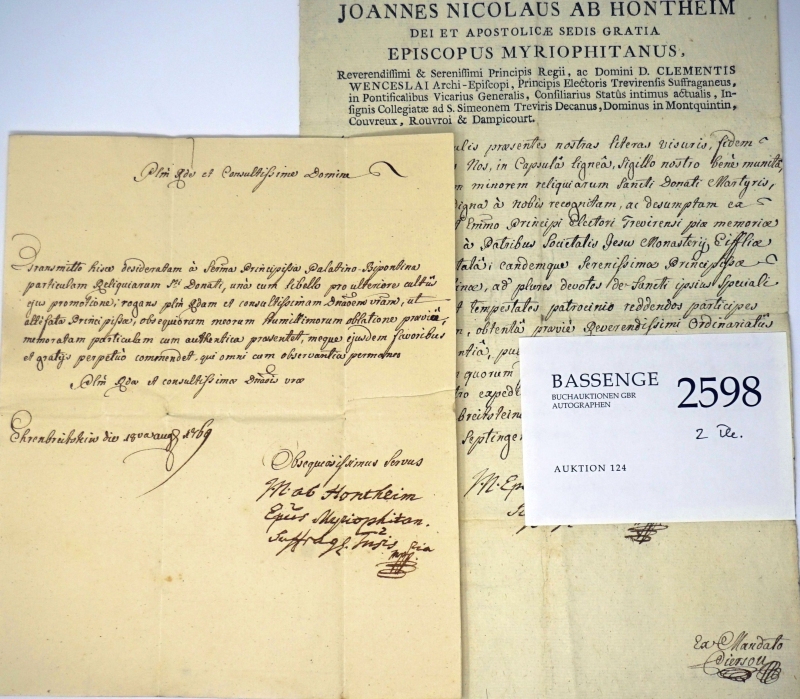 JOANNES NICOLAUS AB HONTHEIM
DEI ET APOSTOLICÆ SEDIS GRATIA
EPISCOPUS MYRIOPHITANUS,
Reverendissimi & Serenissimi Principis Regii, ac Domini D. CLEMENTIS
WENCESLAI Archi-Episcopi, Principis Electoris Trevirensis Suffraganeus,
in Pontificalibus Vicarius Generalis, Consiliarius Statûs intimus actualis, In-
signis Collegiatæ ad S. Simeonem Treviris Decanus, Dominus in Montquintin,
Couvreux, Rouvroi & Dampicourt.
præsentes nostras literas visuris, fidem
Nos, in Capsulâ ligneâ, Sigillo nostro benè munitâ,
minorem reliquiarum Sancti Donati Martyris,
à nobis recognitam, ac desumptam ex
Emmo Principi Electori Trevirensi piæ memoriæ
à Patribus Societatis Jesu Monasterij Eiffliæ
eandemque Serenissimæ Principissæ
ad plures devotos de Sancti ipsius speciali
tempestates patrocinio reddendos participes
obtentâ praviè Reverendissimi Ordinariatûs
quorum
Plm Rde et Consultissime Domine
Transmitto hisce desideratam à Serma Principissa Palatino-Bipontina
particulam Reliquiarum Sti Donati, unà cum libello pro ulteriore cultûs
ejus promotione; rogans plm Rdam et consultissimam Dnaõem vram, ut
allefata Principissæ, obsequiorum meorum humillimorum oblatione praviâ,
memoratam particulam cum authentica præsentet, meque ejusdem favoribus
et gratijs perpetuò commendet, qui omni cum observantia permaneo
Plm Rdæ et consultissimæ Dnaõis vræ
Ehrenbreitstein die 18va augti 1769
Obsequiosissimus Servus
N. ab Hontheim
Epus Myriophitan.
BASSENGE
BUCHAUKTIONEN GBR
AUTOGRAPHEN
2598
2 Tle.
AUKTION 124
Ex Mandato